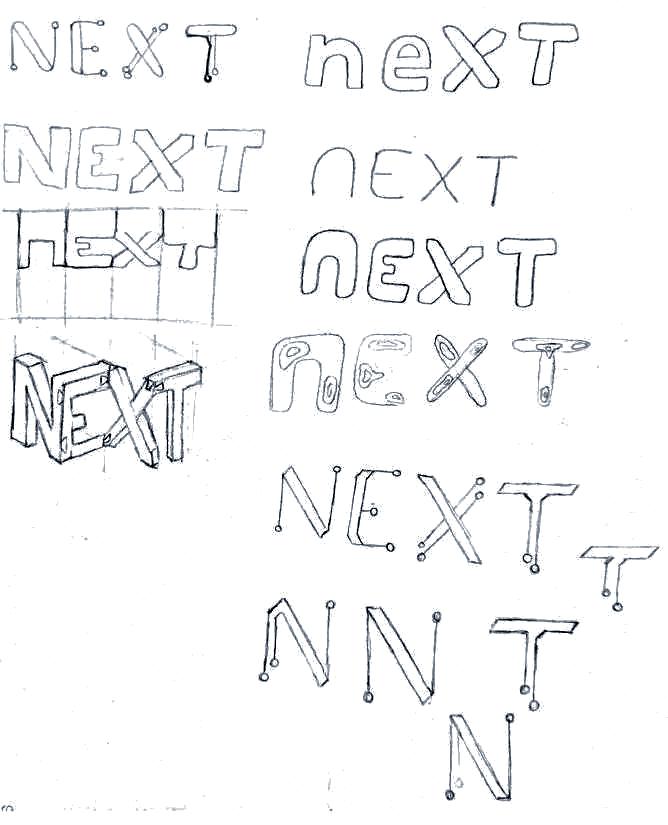 NEXT
neXT
NEXT
nEXT
nEXT
nEXT
NEXT
nEXT
NEXT
T
N N T
N